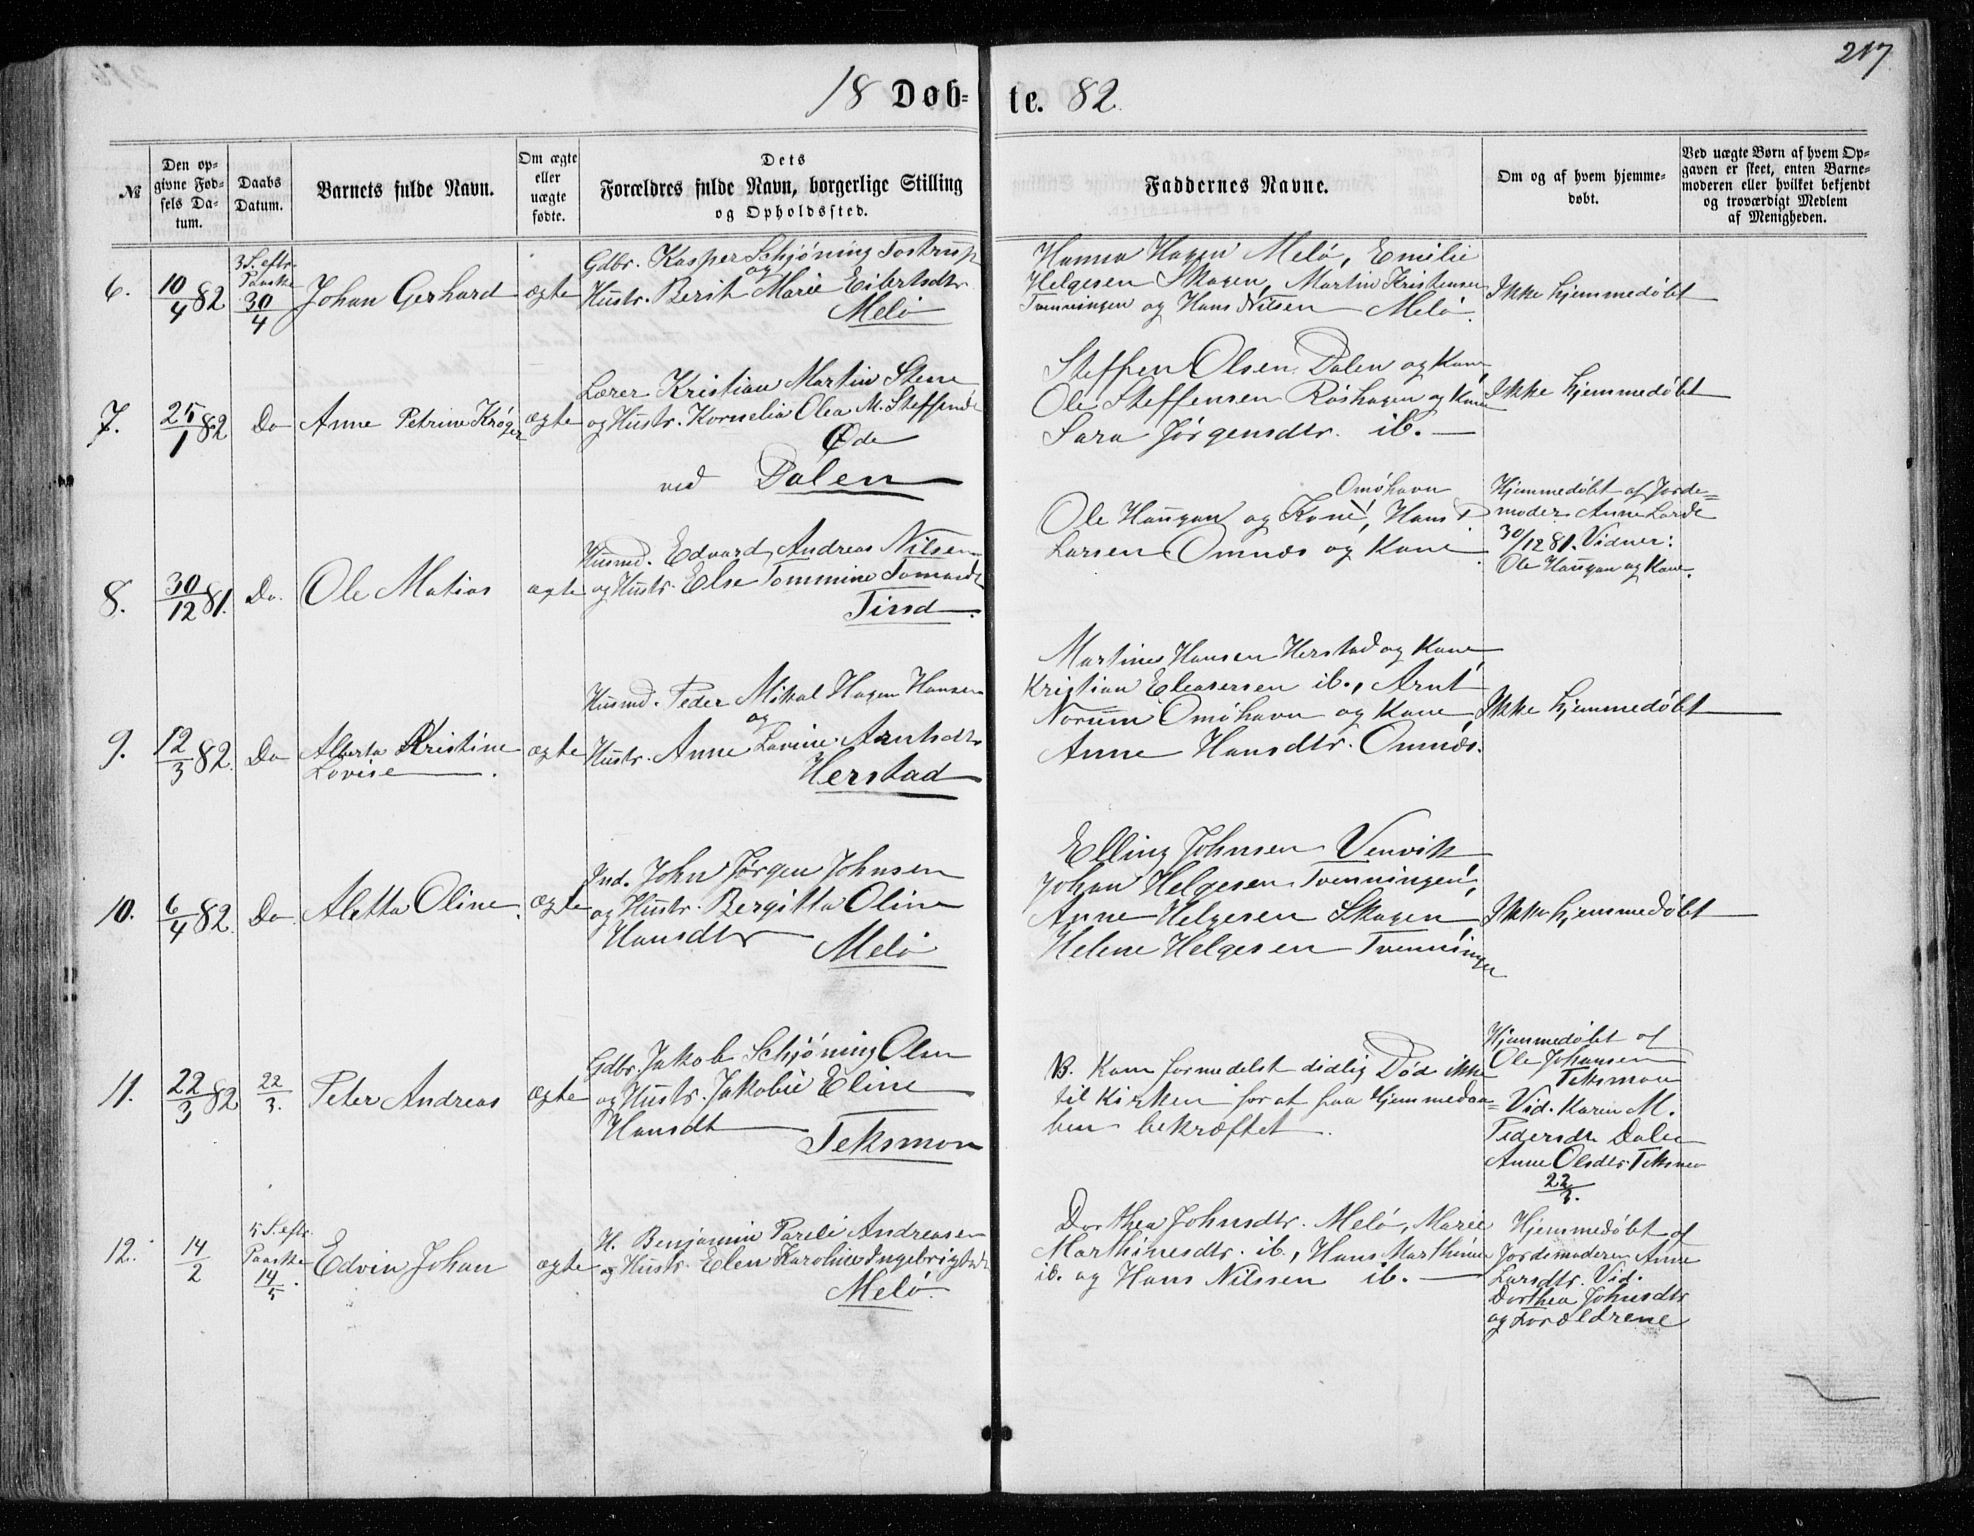 217
18 Døb-te. 82
№
Den op-
givne Fød-
sels Da-
tum.
Daabs
Datum.
Barnets fulde Navn.
Om ægte
eller
uægte
fødte.
Dets
Forældres fulde Navn, borgerlige Stilling
og Opholdssted.
Faddernes Navne.
Om og af hvem hjemme-
døbt.
Ved uægte Børn af hvem Op-
gaven er skeet, enten Barne-
moderen eller hvilket bekjendt
og troværdigt Medlem
af Menigheden.
6.
10/4 82
3 S. eftr.
Paaske
30/4
Johan Gerhard
ægte
Gdbr. Kasper Schjøning Tostrup
og
Hustr. Berit Marie Eibertsdtr
Melø
Hanna Hagen Melø, Emilie
Helgesen Skagen, Martin Kristensen
Tvenningen og Hans Nilsen Melø.
Ikke hjemmedøbt
7.
25/1 82
Do
Anne Petrine Krøger
ægte
Lærer Kristian Martin Stene
og Hustr. Kornelia Olea M. Steffensdtr
Øde
ved Dalen
Steffen Olsen Dalen og Kone,
Ole Steffensen Røshagen og Kone
Sara Jørgensdtr. ib.
Ikke hjemmedøbt
8.
30/12 81.
Do.
Ole Matias
ægte
Husmd. Edvard Andreas Nilsen
og Hustr. Else Tommine Tomasdtr
Tind
Omøhavn
Ole Haugan og Kone, Hans P.
Larsen Omnæs og Kone.
Hjemmedøbt af Jorde=
moder Anne Larsdtr
30/12 81. Vidner:
Ole Haugan og Kone.
9.
12/3 82.
Do
Alberta Kristine
Lovise
ægte
Husmd. Peder Mikal Hagen Hansen
og
Hustr. Anne Lovine Arntsdtr
Herstad
Martines Hansen Herstad og Kone,
Kristian Eleasersen ib., Arnt
Norum Omøhavn og Kone,
Anne Hansdtr. Omnæs.
Ikke hjemmedøbt
10.
6/4 82.
Do
Aletta Oline.
ægte
Ind. John Jørgen Johnsen
og Hustr. Bergitta Oline
Hansdtr
Melø
Elling Johnsen Venvik
Johan Helgesen Tvenningen,
Anne Helgesen Skagen,
Helene Helgesen Tvenningen
Ikke hjemmedøbt
11.
22/3 82
22/3.
Peter Andreas
ægte
Gdbr. Jakob Schjøning Olsen
og Hustr. Jakobie Eline
Hansdt
Teksmon
B. Kom formedelst didlig Død ikke
til Kirken for at faa Hjemmedaa=
ben bekræftet.
Hjemmedøbt af
Ole Johansen
Teksmon
Vid. Karen M.
Pedersdtr Dalen
Anne Olsdtr Teksmon
22/3.
12.
14/2
5 S. eftr.
Paaske
14/5.
Edvin Johan
ægte
H. Benjamin Pareli Andreasen
og Hustr. Elen Karoline Ingebrigtsdtr
Melø.
Dorthea Johnsdtr. Melø, Marie
Marthinesdtr. ib., Hans Marthinsen
ib. og Hans Nilssen ib.
Hjemmedøbt af
Jordemoderen Anne
Larsdtr. Vid.
Dorthea Johnsdtr
og Forældrene